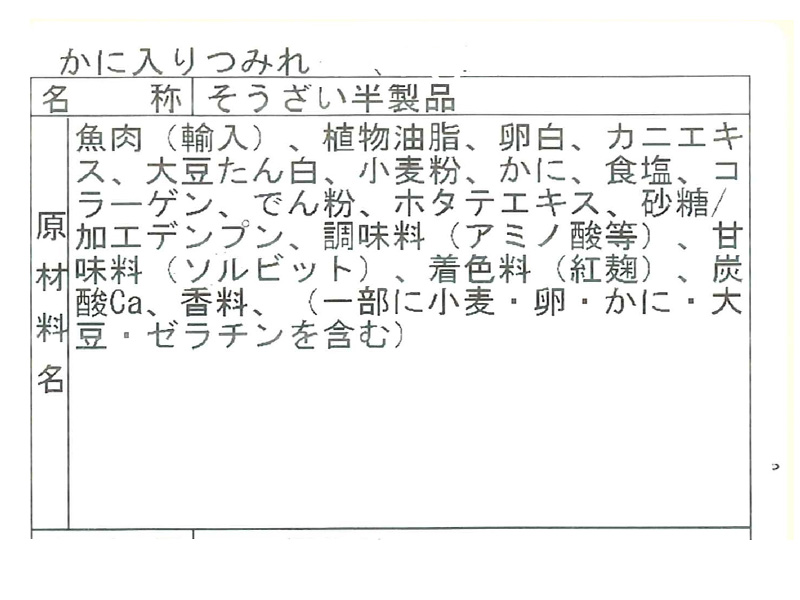 かに入りつみれ 、
名 称 そうざい半製品
原材料名
魚肉（輸入）、植物油脂、卵白、カニエキ
ス、大豆たん白、小麦粉、かに、食塩、コ
ラーゲン、でん粉、ホタテエキス、砂糖/
加工デンプン、調味料（アミノ酸等）、甘
味料（ソルビット）、着色料（紅麹）、炭
酸Ca、香料、（一部に小麦・卵・かに・大
豆・ゼラチンを含む）